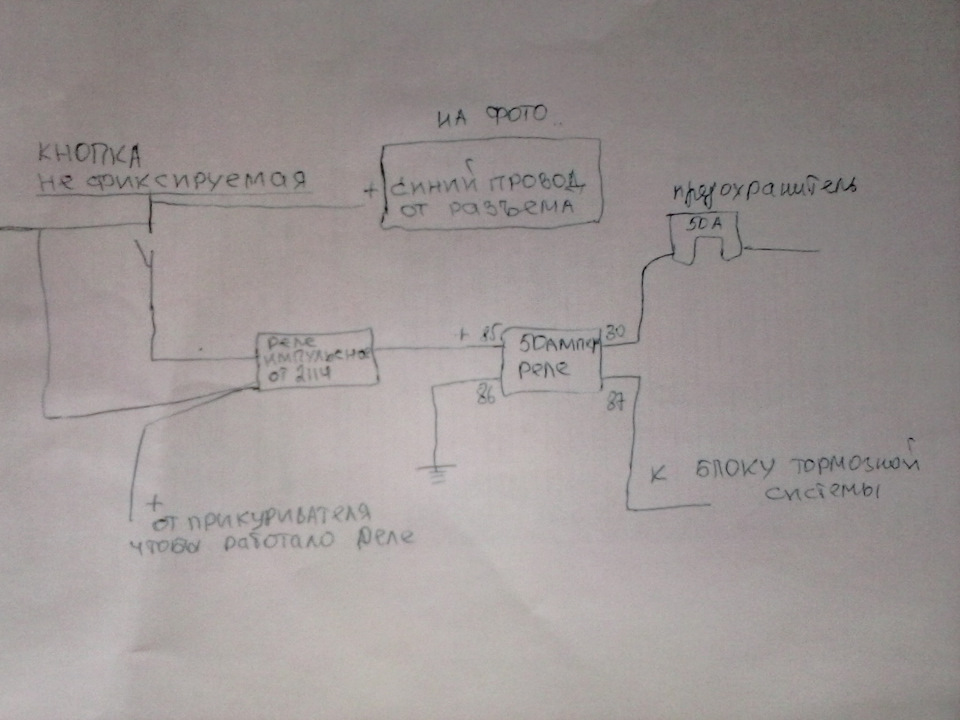 НА ФОТО..
КНОПКА
не фиксируемая
+ СИНИЙ ПРОВОД
ОТ РАЗЪЕМА
предохранитель
50 А
реле
импульсное
от 2114
+ 85
50АМПЕР
реле
30
86
87
К БЛОКУ ТОРМОЗНОЙ
СИСТЕМЫ
+
от ПРИКУРИВАТЕЛЯ
чтобы работало реле